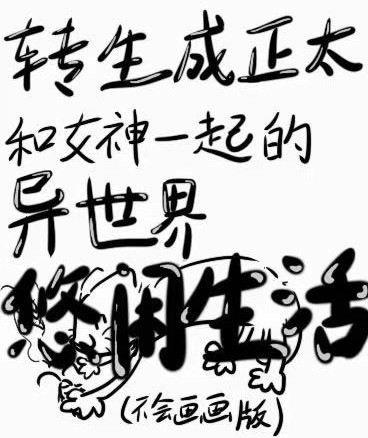 转生成正太
和女神一起的
异世界
悠闲生活
(不会画画版)